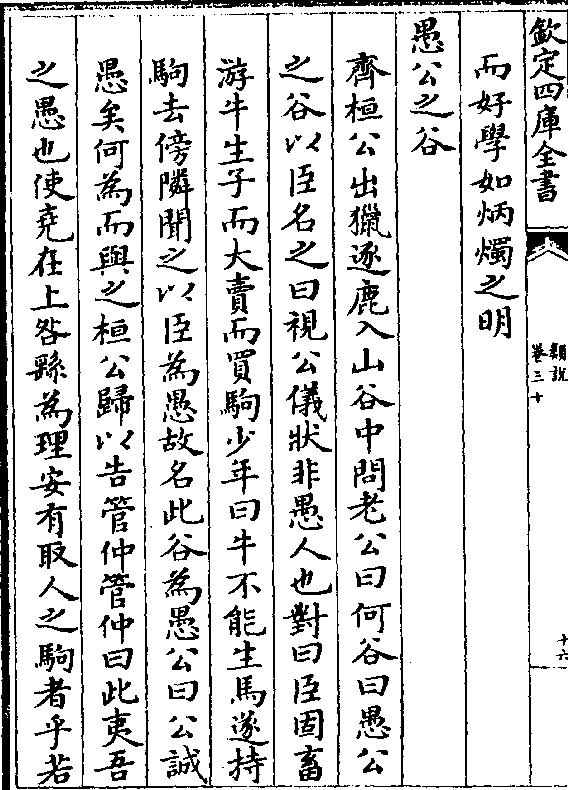 欽定四庫全書
類說
卷三十
十六
而好學如炳燭之明
愚公之谷
齊桓公出獵逐鹿入山谷中問老公曰何谷曰愚公
之谷以臣名之曰視公儀狀非愚人也對曰臣固畜
㳺牛生子而大賣而買駒少年曰牛不能生馬遂持
駒去傍隣聞之以臣為愚故名此谷為愚公曰公誠
愚矣何為而與之桓公歸以告管仲管仲曰此夷吾
之愚也使堯在上咎繇為理安有取人之駒者乎若